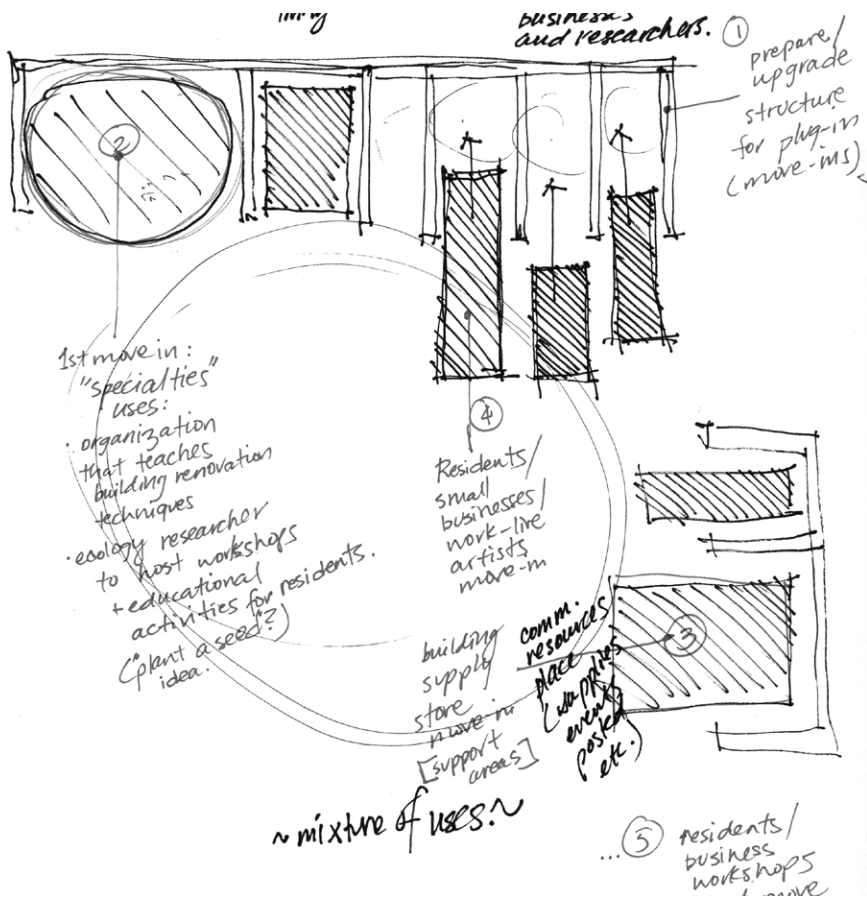 living
businesses
and researchers.
①
prepare/
upgrade
structure
for plug-in
(move-ins)
②
1st move in:
"specialties"
uses:
· organization
that teaches
building renovation
techniques
· ecology researcher
to host workshops
+ educational
activities for residents.
("plant a seed"?)
idea.
④
Residents/
small
businesses/
work-live
artists
move-in
building
supply
store
move-in
[support
areas]
comm.
resources
place
(supplies
events
posted
etc.)
③
~mixture of uses.~
...⑤
residents/
business
workshops
move